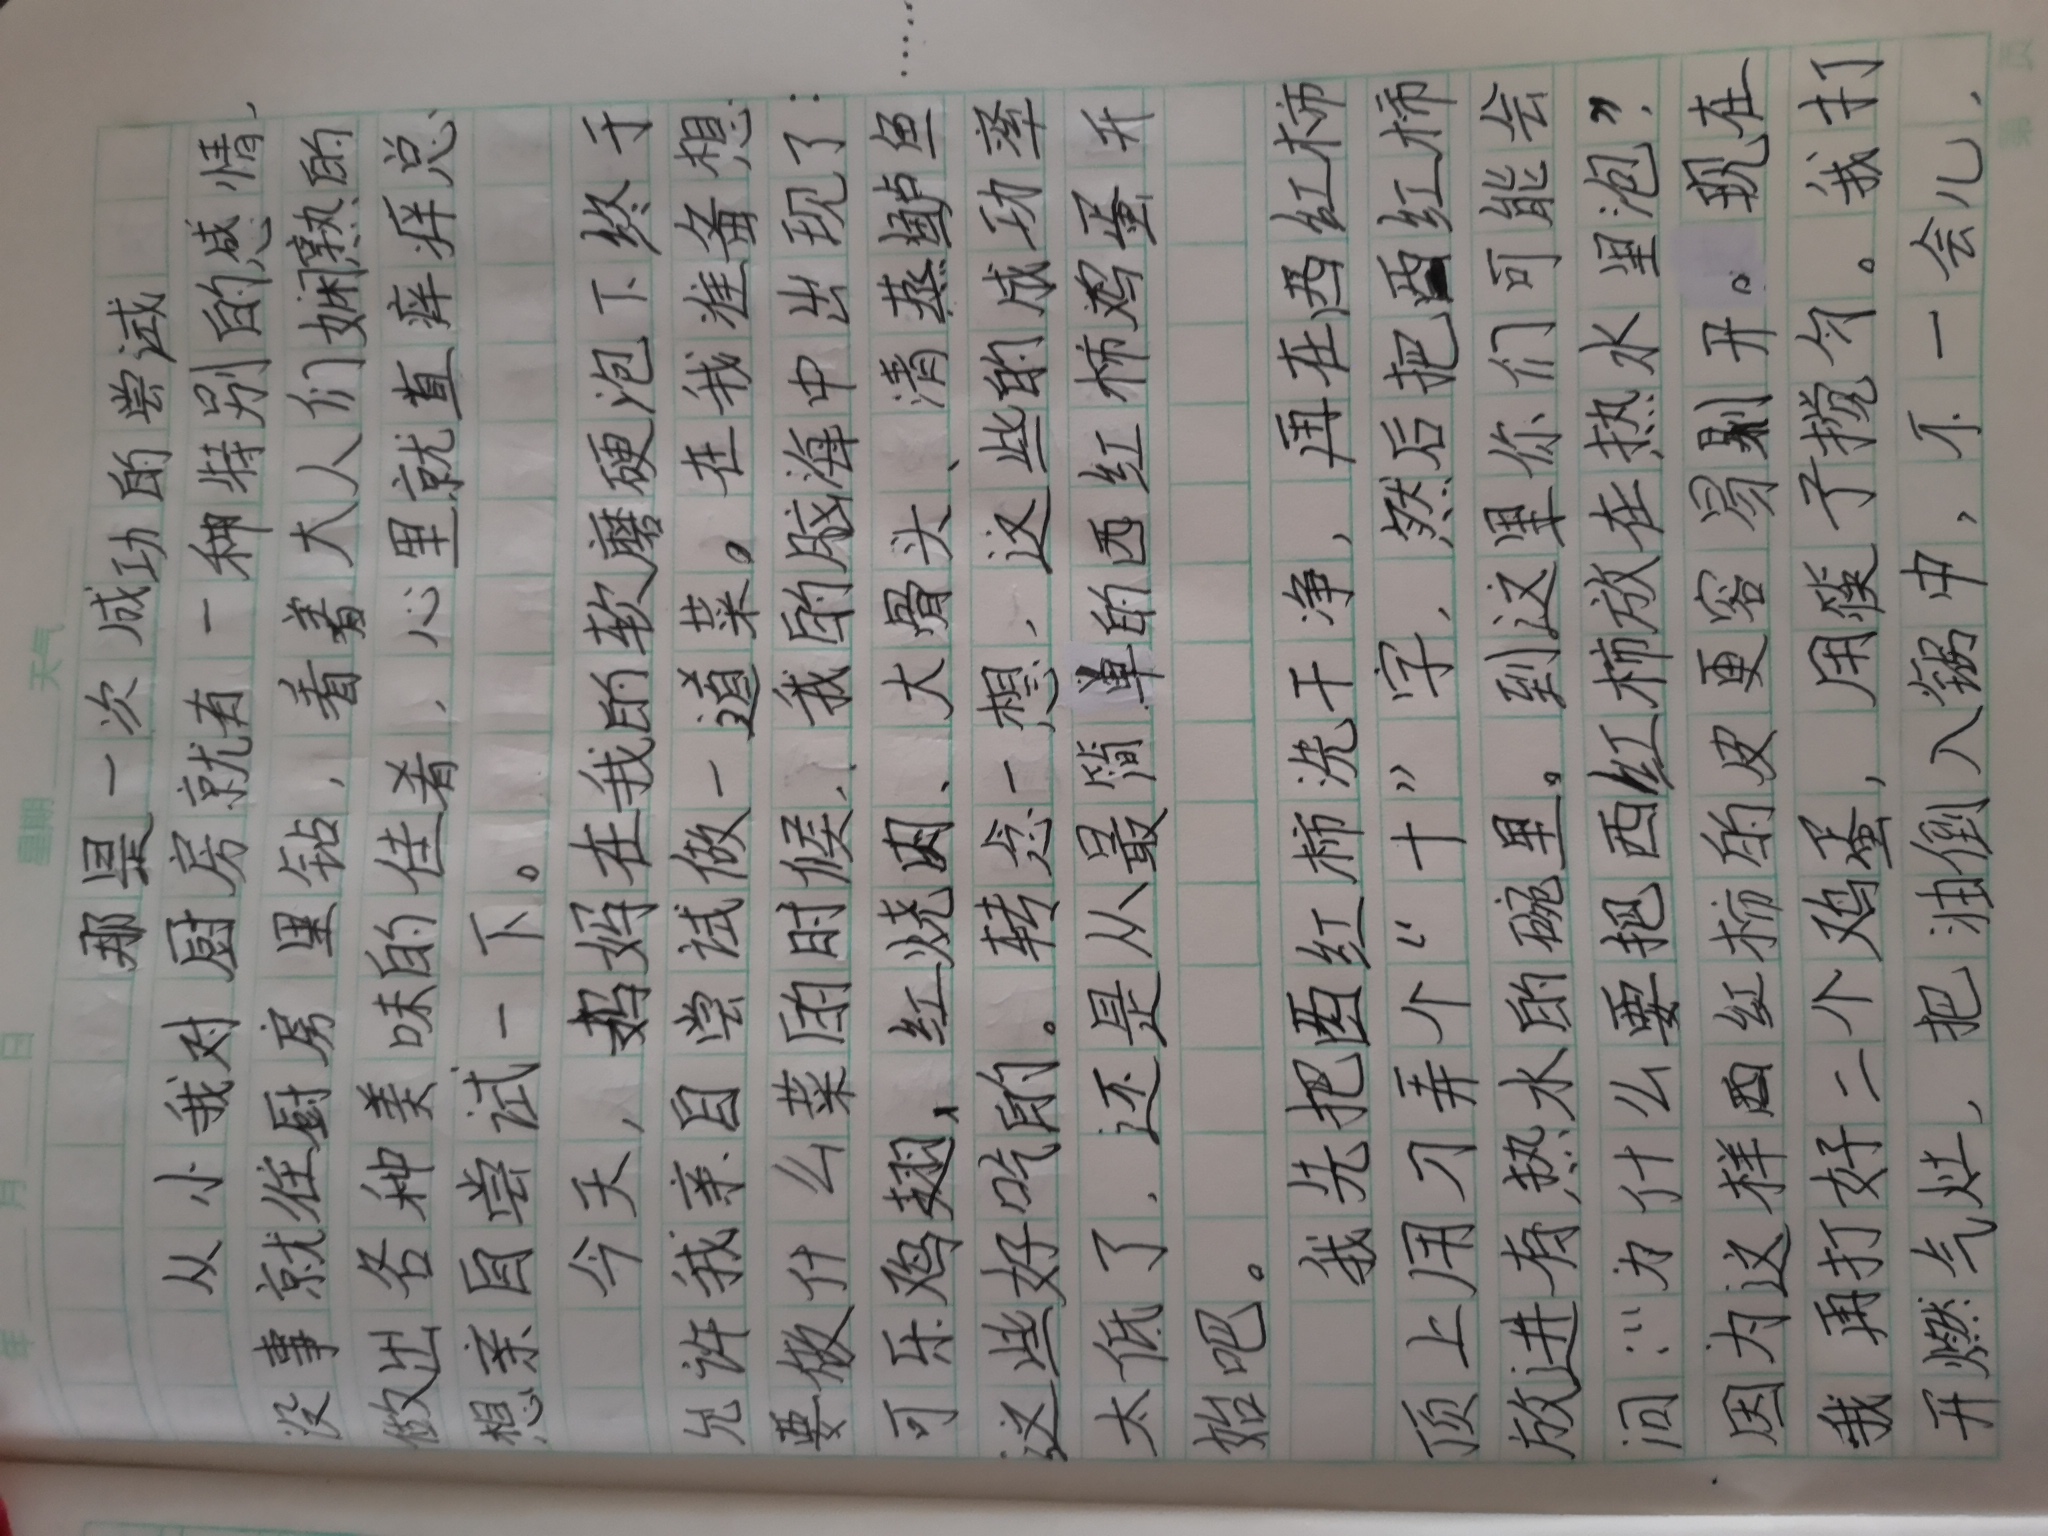 年 月 日 星期 天气
那是一次成功的尝试
从小我对厨房就有一种特别的感情、
没事就往厨房里钻，看着大人们娴熟的
做出各种美味的佳肴，心里就直痒痒总、
想亲自尝试一下。
今天，妈妈在我的软磨硬泡下终于
允许我亲自尝试做一道菜。在我准备想
要做什么菜的时候，我的脑海中出现了：
可乐鸡翅、红烧肉、大骨头、清蒸鲈鱼……
这些好吃的。转念一想，这些的成功率
太低了，还是从最简单的西红柿鸡蛋开
始吧。
我先把西红柿洗干净，再在西红柿
顶上用刀弄个“十”字，然后把西红柿
放进有热水的碗里。到这里你们可能会
问：“为什么要把西红柿放在热水里泡”，
因为这样西红柿的皮更容易剥开。现在
我再打好二个鸡蛋，用筷子搅匀。我打
开燃气灶，把油倒入锅中，不一会儿，
第 页